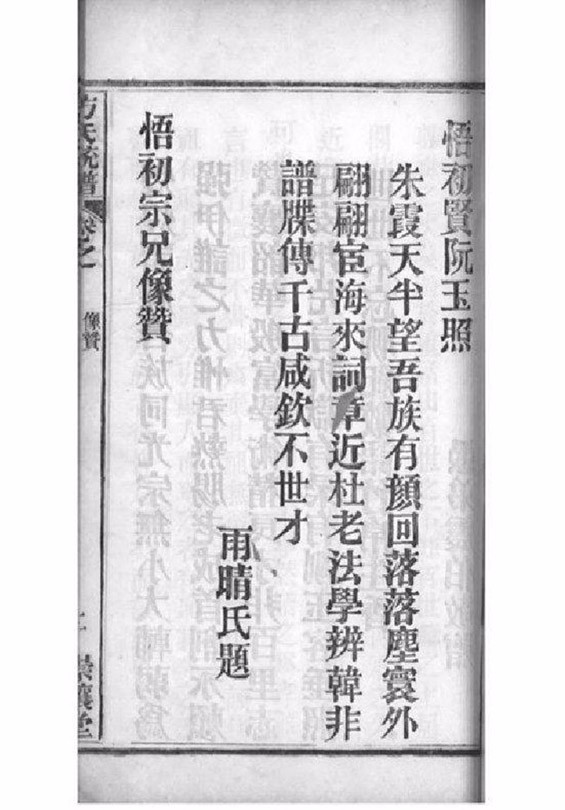 悟初賢阮玉照
朱霞天半望吾族有顏回落落塵寰外
翩翩宦海來詞章近杜老法學辨韓非
譜牒傳千古咸欽不世才
雨晴氏題
悟初宗兄像贊
方氏統譜
卷之
像贊